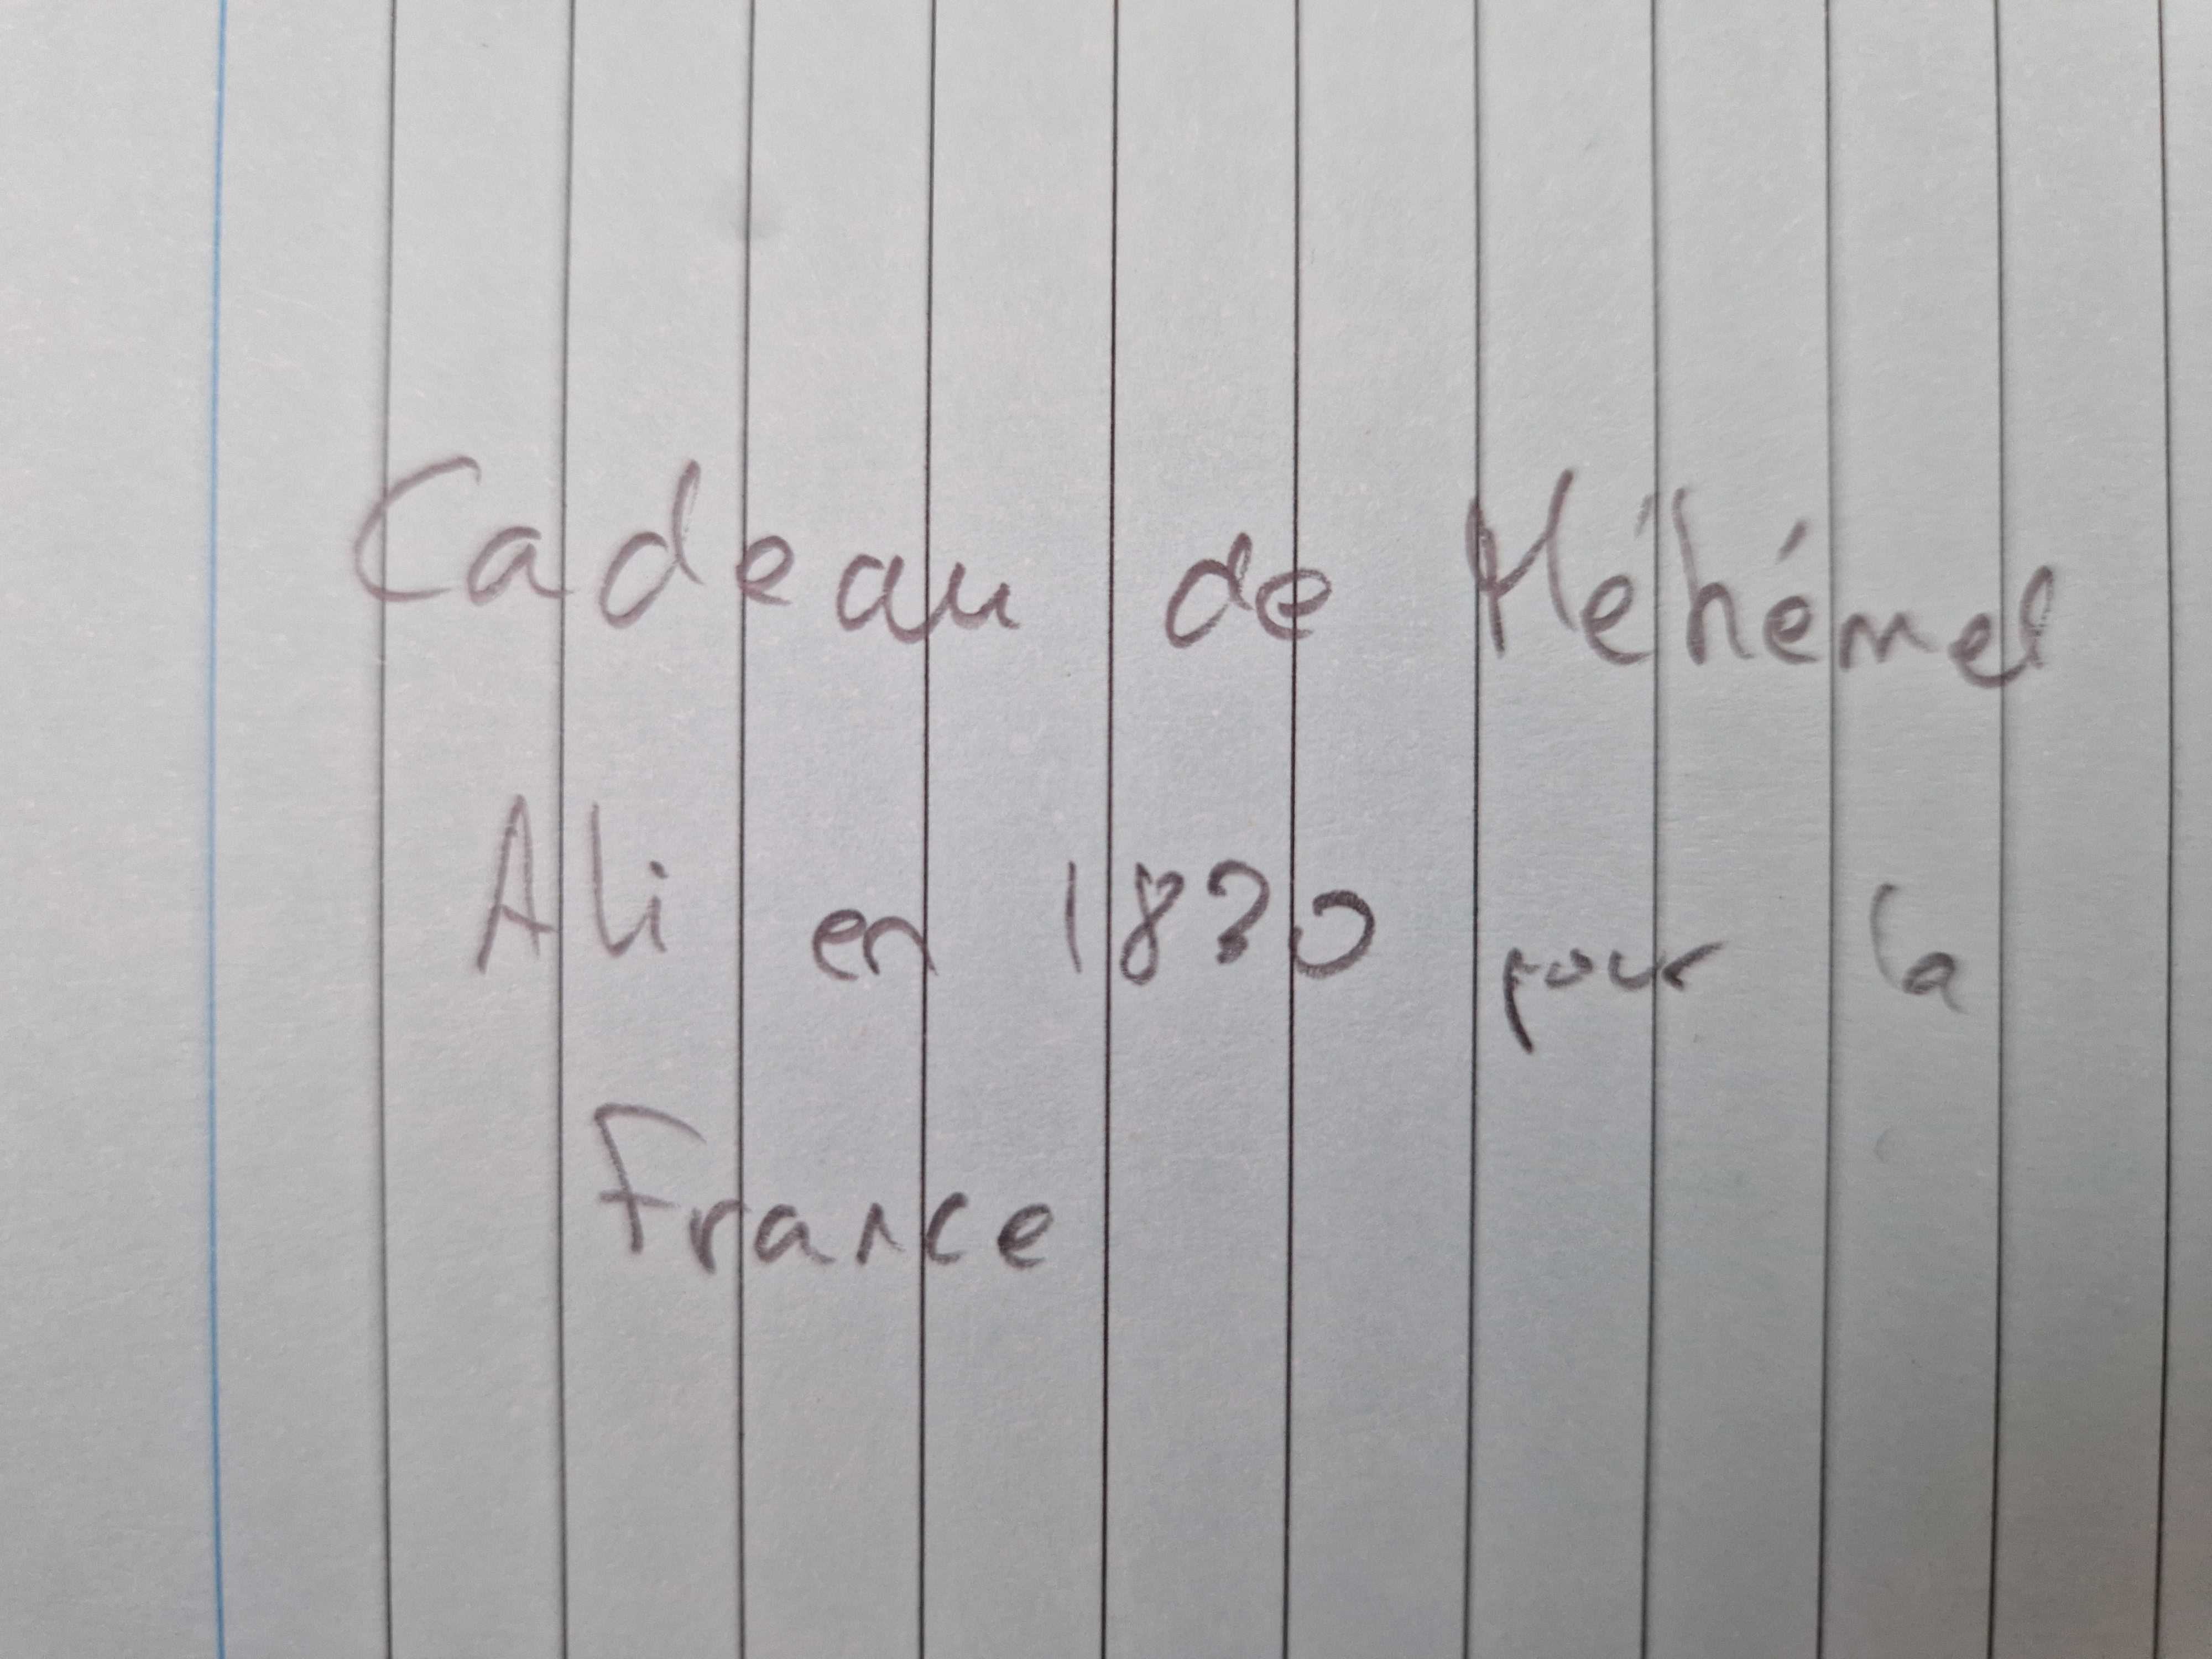 Cadeau de Méhémet
Ali en 1830 pour la
France